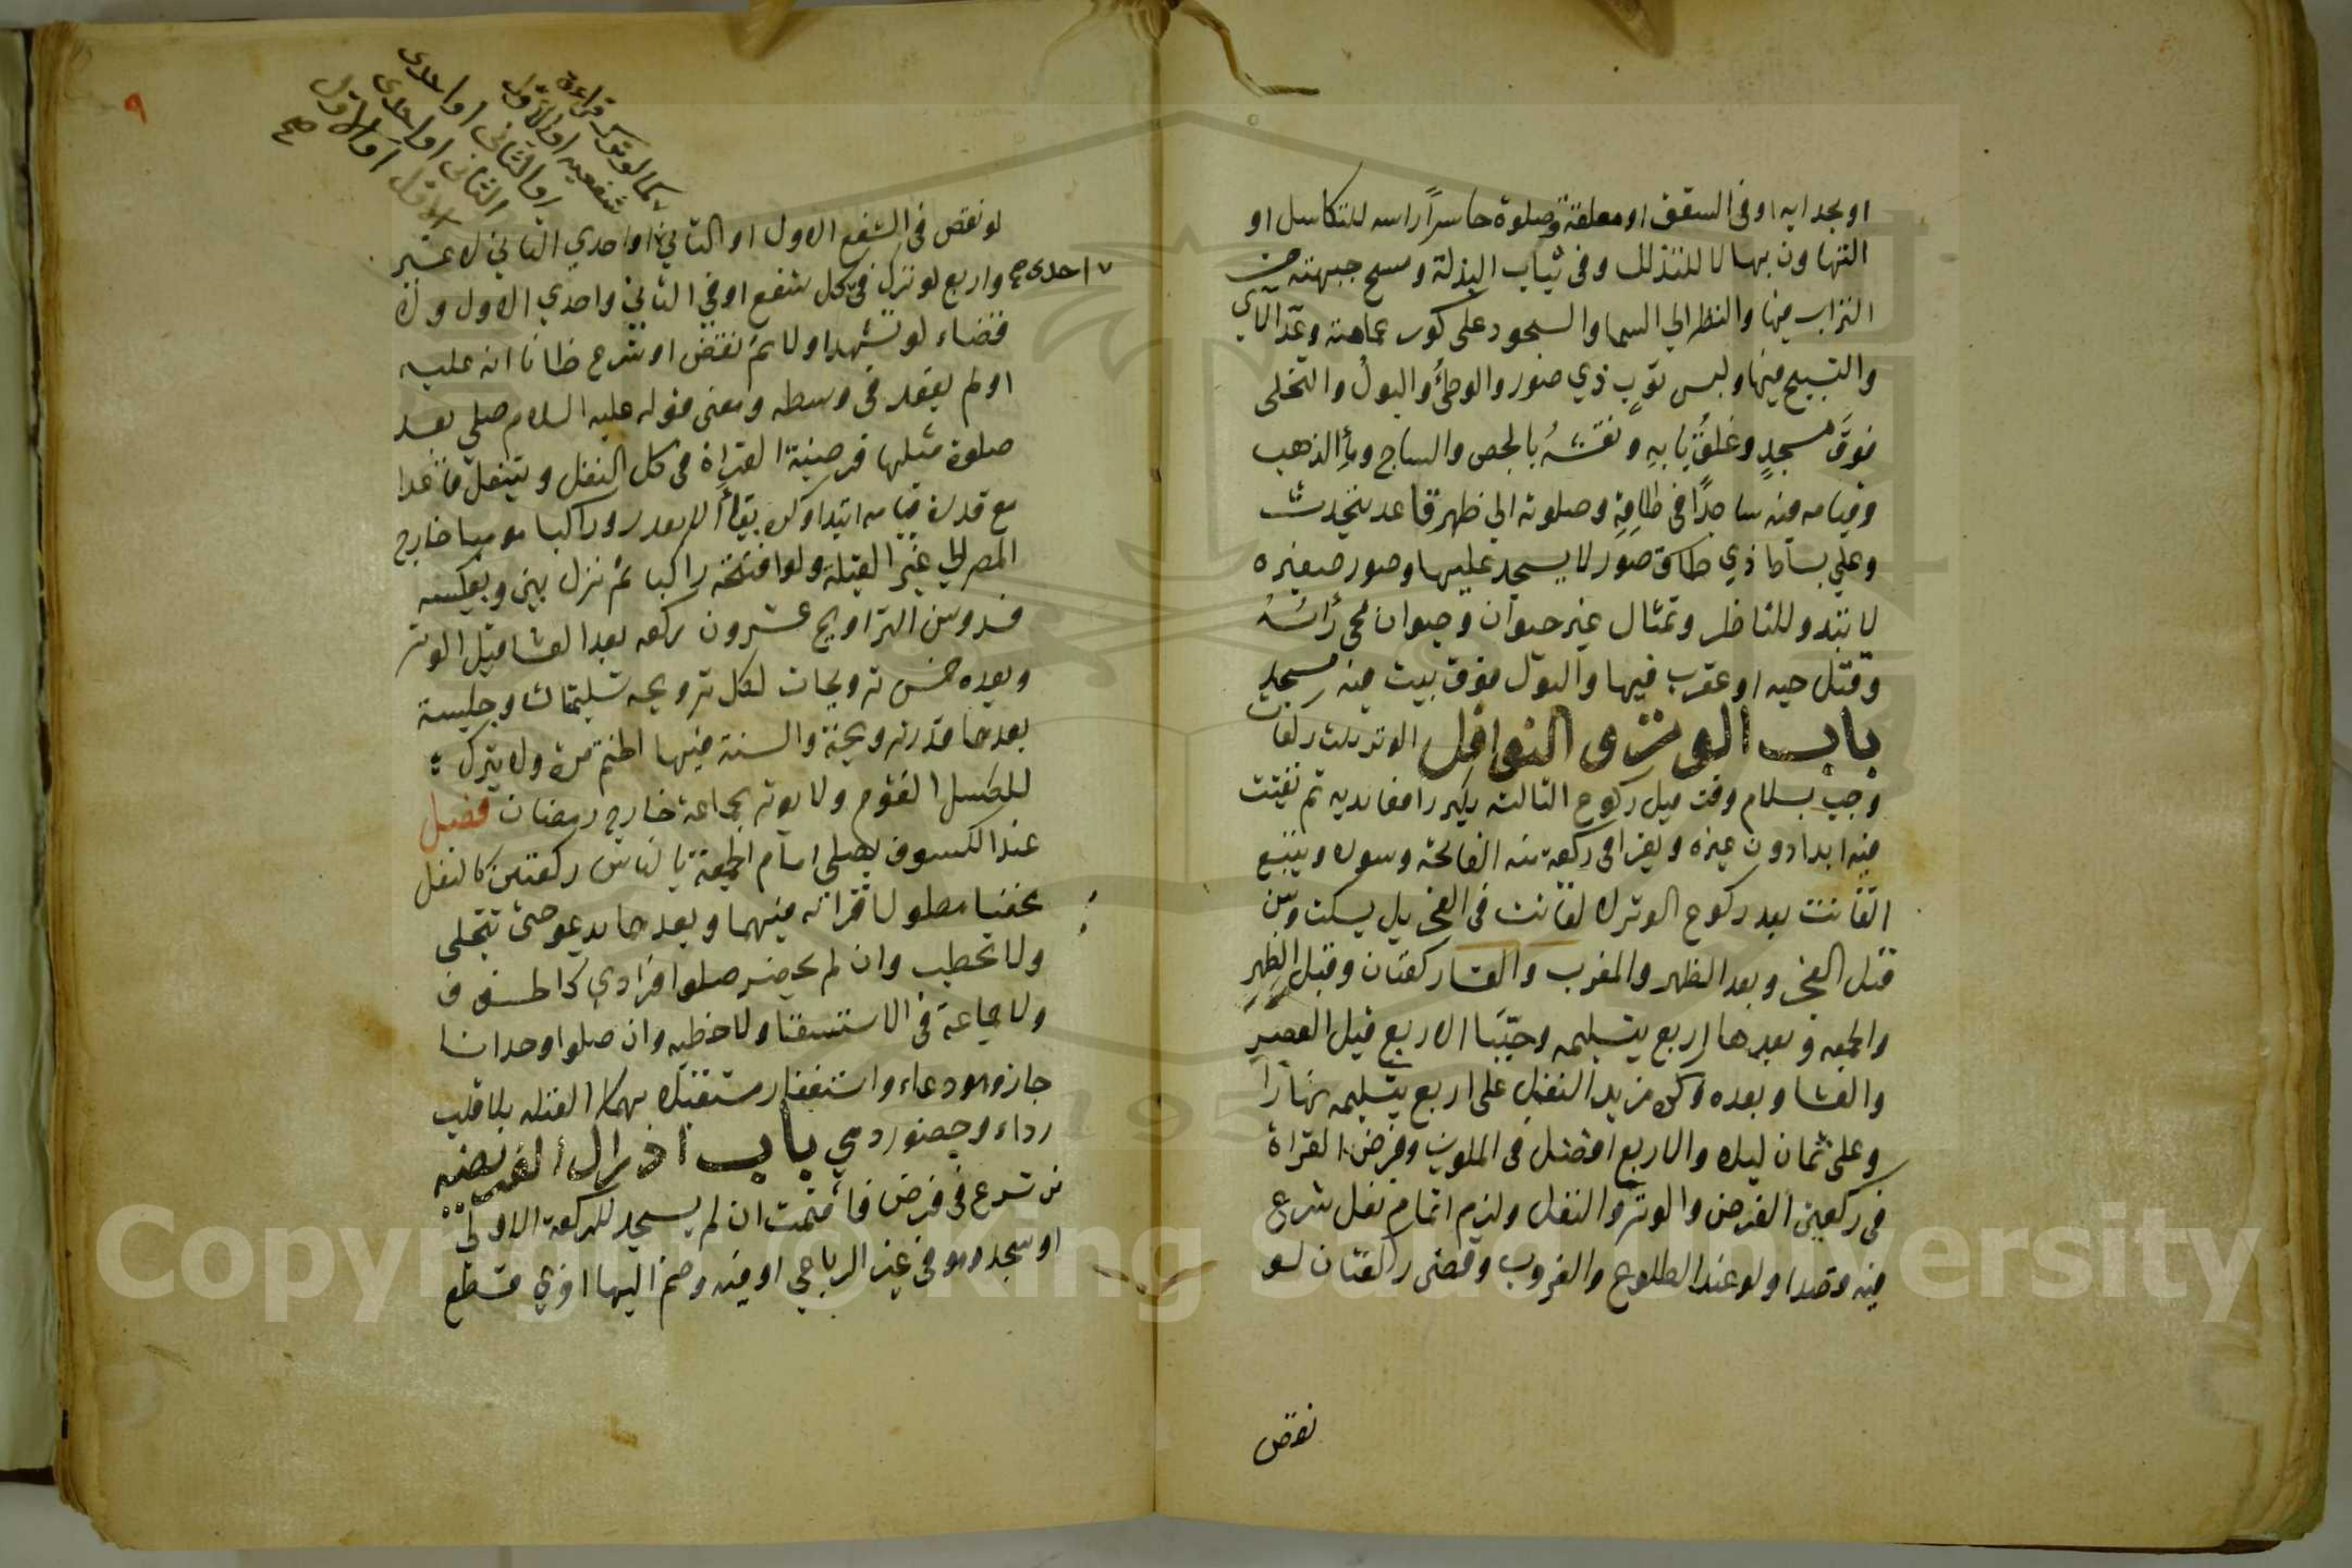 او بحدايه او فى السقف او معلقة وصلوة حاسراً راسه للتكاسل او
التهاون بها لا للتذلل وفى ثياب البذلة ومسح جبهته من
التراب فيها والنظر الي السما والسجود على كور عمامته وعدّ الاي
والتسبيح فيها ولبس ثوبٍ ذي صور والوطئُ والبولُ والتخلى
فوقَ مسجدٍ وغلقُ بابهِ ونقشهُ بالجص والساج وماءِ الذهب
وقيامه فيه ساجدًا فى طاقهِ وصلوته الي ظهر قاعد يتحدث
وعلي بساط ذي صور لا يسجد عليها وصور صغيره
لا تبدو للناظر وتمثال غير حيوان وحيوان محي رأسُهُ
وقتل حيه او عقرب فيها والبول فوق بيت فيه مسجدٍ
باب الوتر و النوافل الوتر ثلث ركعات
وجب بسلام وقت قبل ركوع الثالثه يكبر رافعا يديه ثم يقنت
فيه ابدا دون غيره ويقرا فى ركعة منه الفاتحه وسوره ويتبع
القانت بعد ركوع الوتر لا لقانت فى الفجر بل يسكت وسن
قبل الفجر وبعد الظهر والمغرب والعشا ركعتان وقبل الظهرِ
والجمعه وبعدها اربع بتسليمه وحببا الاربع قبل العصرِ
والعشا وبعده وكره مزيد النفل على اربع بتسليمه نهارًا
وعلى ثمان ليلا والاربع افضل فى الملوين وفرض القراة
فى ركعتين الفرض والوتر والنفل ولزم اتمام نفل شرع
فيه قصدا ولو عند الطلوع والغروب وقضى ركعتان لو
نقض
٩
كما لو ترك قراءة
شفعيه او الاول
او الثانى او احدى
الثانى او احدى
الاول او الاول
صح
لو نقض فى الشفع الاول او الثاني او احدي الثاني لا غير
احدى صح
واربع لو ترك فى كل شفع او فى الثاني واحدي الاول ولا
قضاء لو تشهد اولا ثم نقض او شرع ظانا انه عليه
او لم يقعد فى وسطه ومعنى قوله عليه السلام لا يصلى بعد
صلوة مثلها فرضية القراة فى كل النفل ويتنفل قاعدا
مع قدرة قيامه ابتدا وكره بقاءً الا بعذر وراكبا موميا خارج
المصر الي غير القبلة ولو افتتحه راكبا ثم نزل بنى وبعكسه
فسد وسن التراويح عشرون ركعه بعد العشا قبل الوتر
وبعده خمس ترويحات لكل ترويحه تسليمتان وجلسة
بعدها قدر ترويحة والسنة فيها الختم مرة ولا يترك
لكسل القوم ولا يوتر بجماعة خارج رمضان فصل
عند الكسوف يصلى امام الجمعة بالناس ركعتين كالنفل
مخفيا مطولا قراته فيهما وبعدها يدعو حتى تنجلى
ولا يخطب وان لم يحضر صلوا فرادي كالخسوف
ولا جماعة فى الاستسقا ولا خطبه وان صلوا وحدانا
جاز وهو دعاء واستغفار مستقبلا بهما القبله بلا قلب
رداء وحضور ذمي باب ادراك الفريضه
من شرع فى فرض فاقيمت ان لم يسجد للركعة الاولي
او سجد وهو فى غير الرباعي او فيه وضم اليها اخري قطع